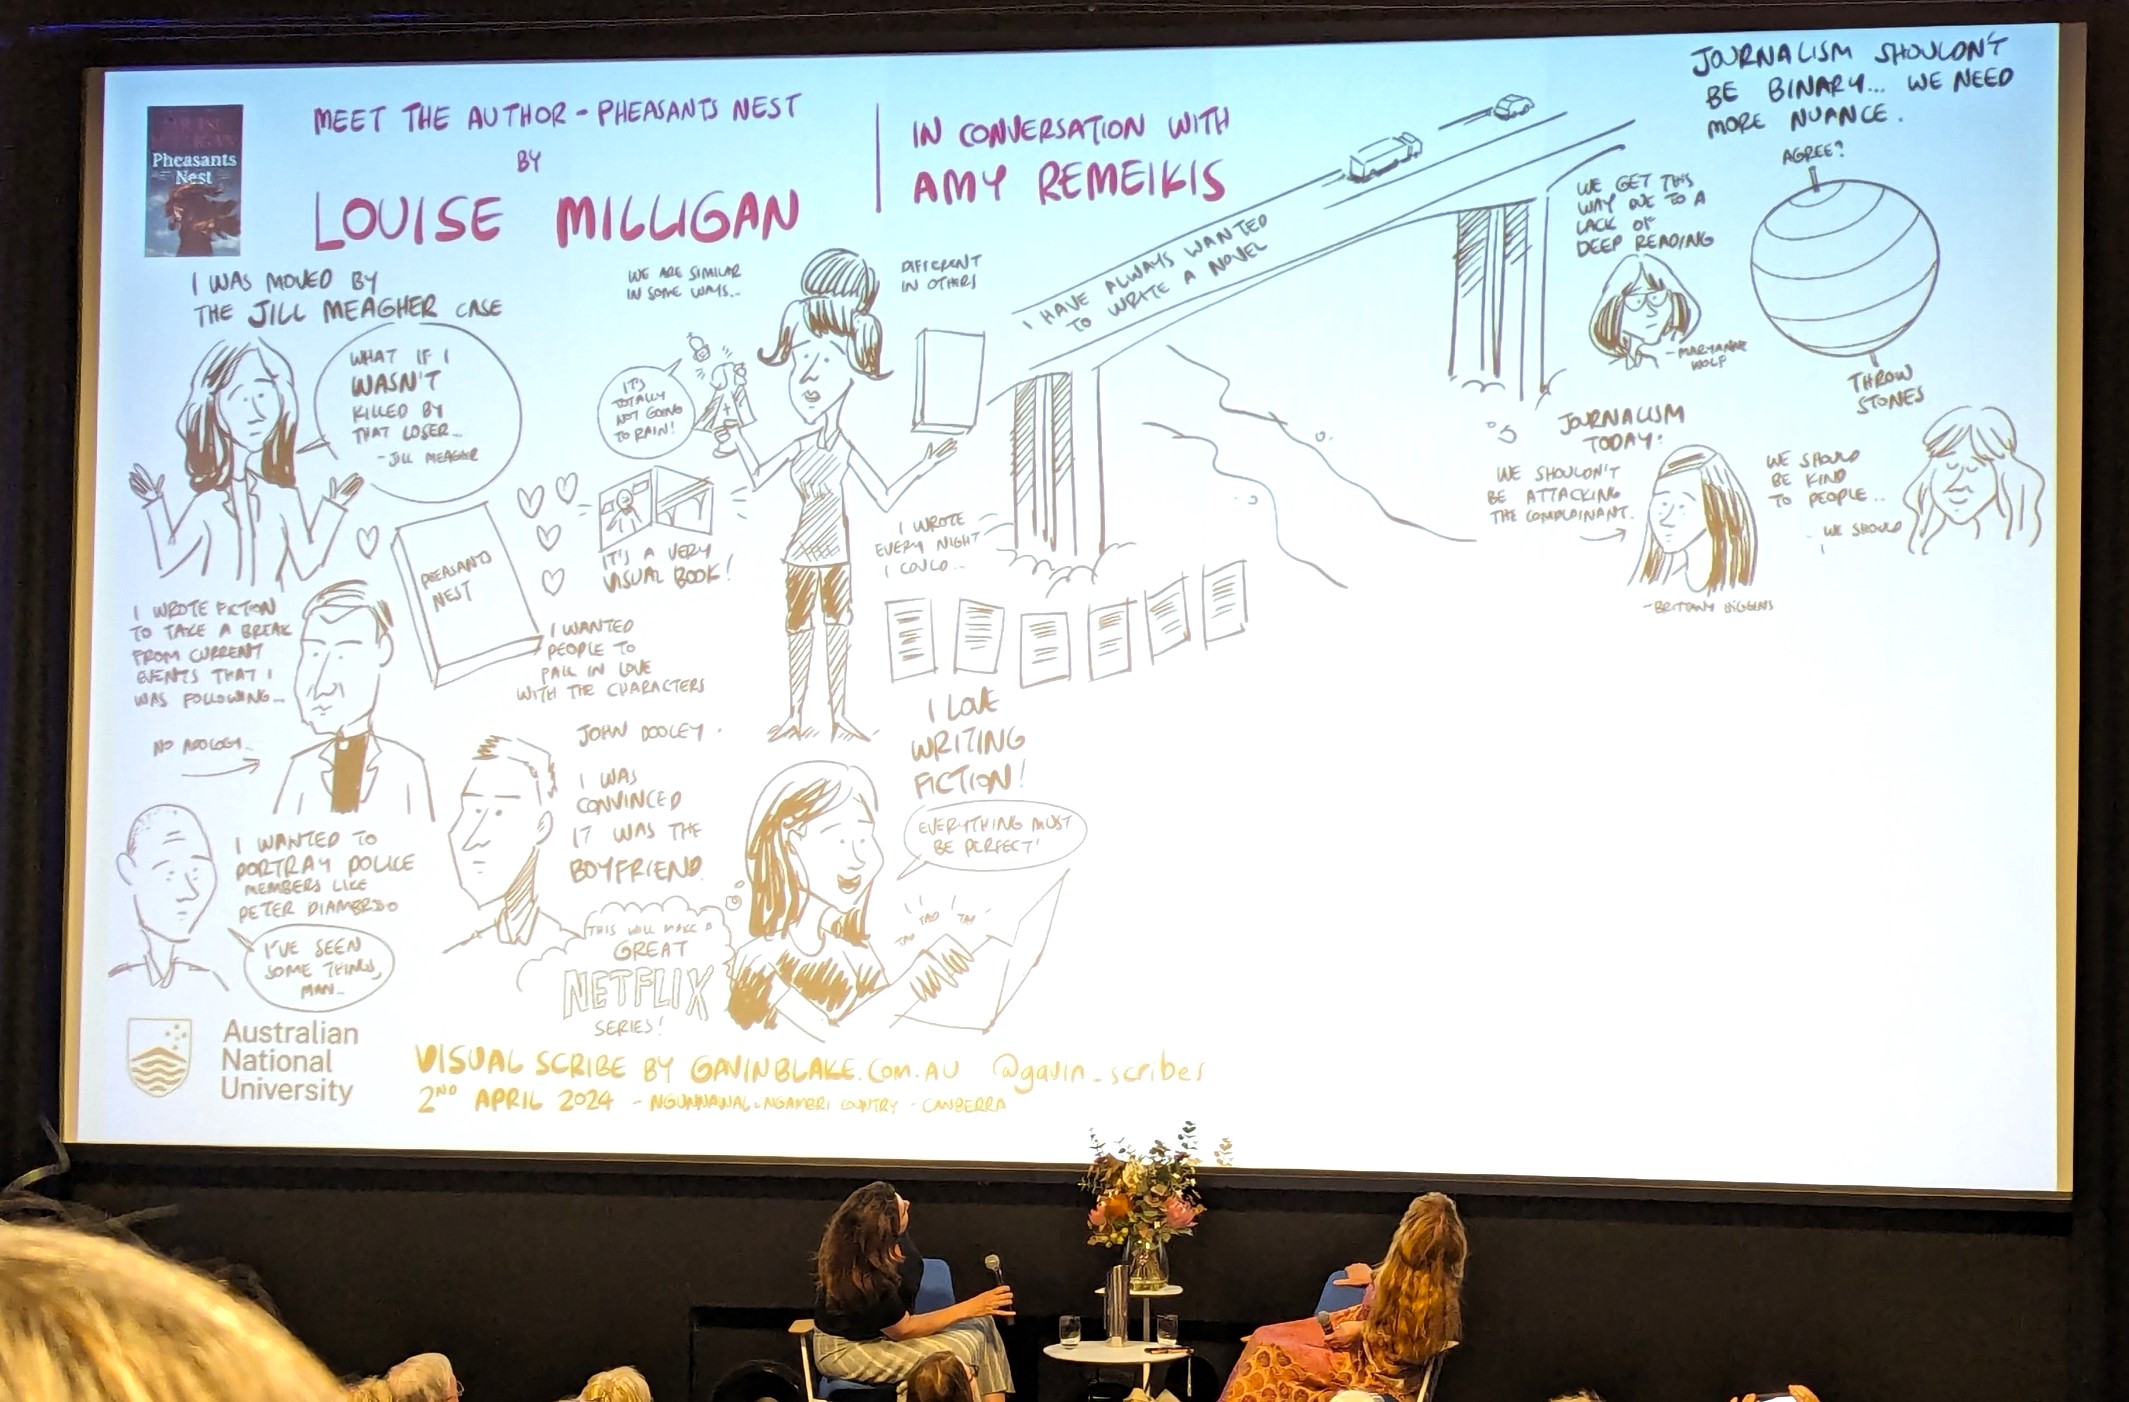 Pheasants
Nest
MEET THE AUTHOR - PHEASANTS NEST
BY
LOUISE MILLIGAN
IN CONVERSATION WITH
AMY REMEIKIS
I WAS MOVED BY
THE JILL MEAGHER CASE
WHAT IF I
WASN'T
KILLED BY
THAT LOSER...
- JILL MEAGHER
WE ARE SIMILAR
IN SOME WAYS...
DIFFERENT
IN OTHERS
IT'S
TOTALLY
NOT GOING
TO RAIN!
IT'S A VERY
VISUAL BOOK!
PHEASANTS
NEST
I WANTED
PEOPLE TO
FALL IN LOVE
WITH THE CHARACTERS
I WROTE FICTION
TO TAKE A BREAK
FROM CURRENT
EVENTS THAT I
WAS FOLLOWING...
NO APOLOGY...
I WANTED TO
PORTRAY POLICE
MEMBERS LIKE
PETER
I'VE SEEN
SOME THINGS,
MAN...
JOHN DOOLEY.
I WAS
CONVINCED
IT WAS THE
BOYFRIEND.
THIS WILL MAKE A
GREAT
NETFLIX
SERIES!
I HAVE ALWAYS WANTED
TO WRITE A NOVEL
I WROTE
EVERY NIGHT
I COULD...
I LOVE
WRITING
FICTION!
EVERYTHING MUST
BE PERFECT!
TAP TAP
TAP
JOURNALISM SHOULDN'T
BE BINARY... WE NEED
MORE NUANCE.
AGREE?
THROW
STONES
WE GET THIS
WAY DUE TO A
LACK OF
DEEP READING
- MARYANNE
WOLF
JOURNALISM
TODAY:
WE SHOULDN'T
BE ATTACKING
THE COMPLAINANT.
- BRITTANY HIGGINS
WE SHOULD
BE KIND
TO PEOPLE...
WE SHOULD
Australian
National
University
VISUAL SCRIBE BY GAVINBLAKE.COM.AU @gavin_scribes
2ND APRIL 2024 - NGUNNAWAL & NGAMBRI COUNTRY - CANBERRA